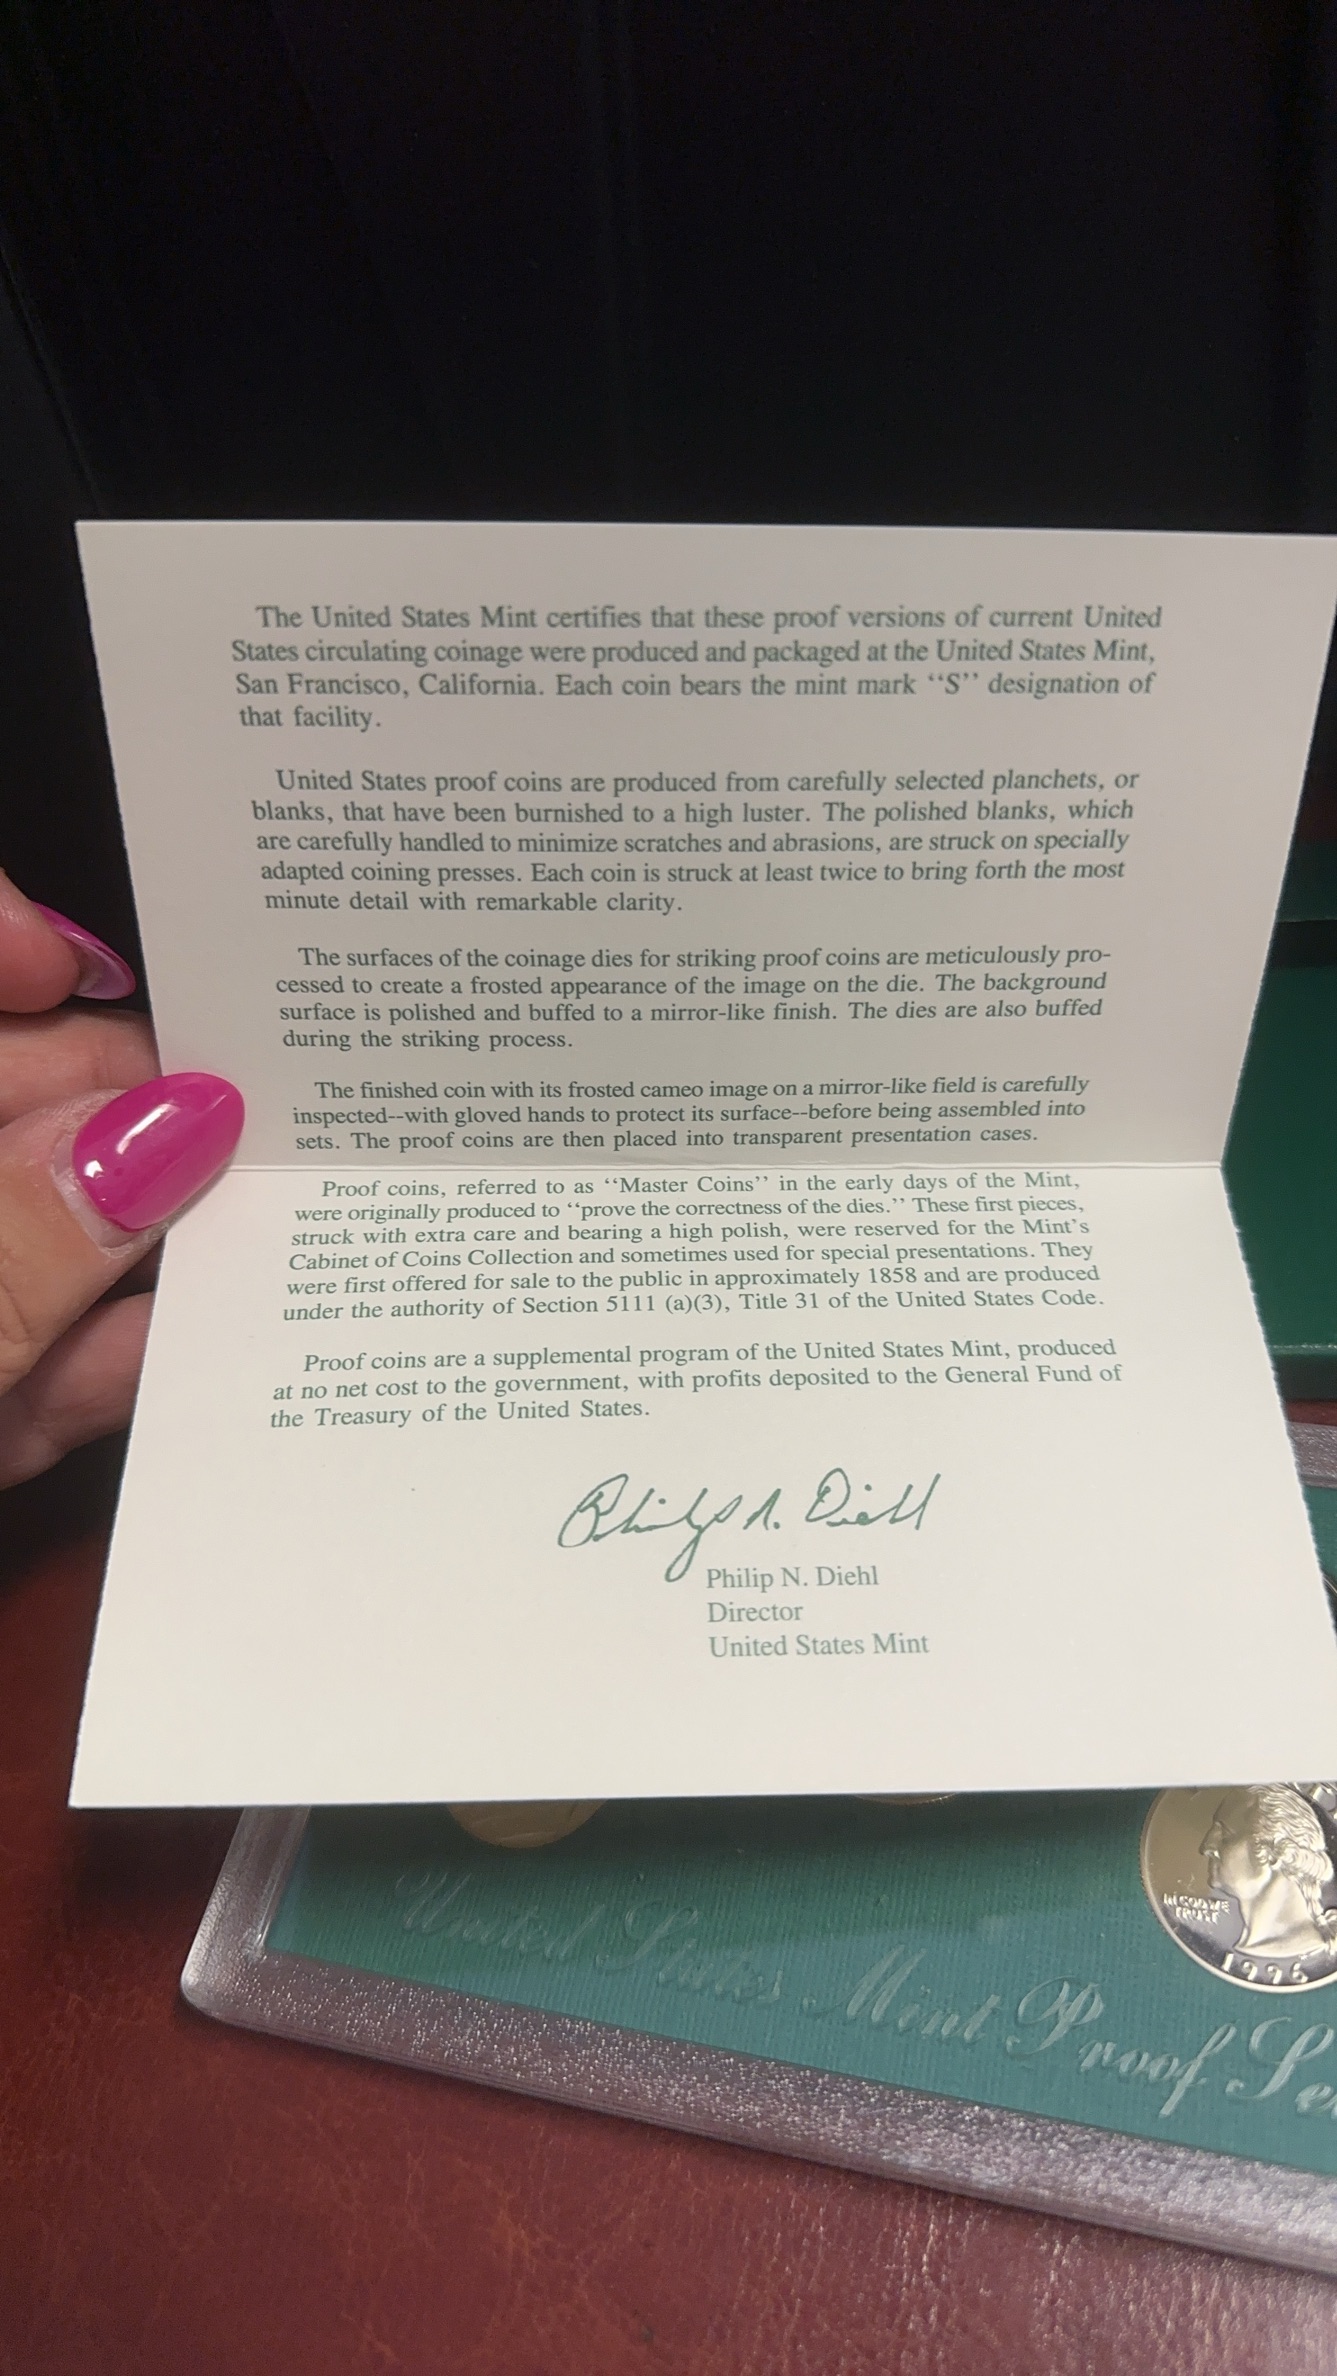 The United States Mint certifies that these proof versions of current United
States circulating coinage were produced and packaged at the United States Mint,
San Francisco, California. Each coin bears the mint mark ‘‘S’’ designation of
that facility.
United States proof coins are produced from carefully selected planchets, or
blanks, that have been burnished to a high luster. The polished blanks, which
are carefully handled to minimize scratches and abrasions, are struck on specially
adapted coining presses. Each coin is struck at least twice to bring forth the most
minute detail with remarkable clarity.
The surfaces of the coinage dies for striking proof coins are meticulously pro-
cessed to create a frosted appearance of the image on the die. The background
surface is polished and buffed to a mirror-like finish. The dies are also buffed
during the striking process.
The finished coin with its frosted cameo image on a mirror-like field is carefully
inspected--with gloved hands to protect its surface--before being assembled into
sets. The proof coins are then placed into transparent presentation cases.
Proof coins, referred to as ‘‘Master Coins’’ in the early days of the Mint,
were originally produced to ‘‘prove the correctness of the dies.’’ These first pieces,
struck with extra care and bearing a high polish, were reserved for the Mint’s
Cabinet of Coins Collection and sometimes used for special presentations. They
were first offered for sale to the public in approximately 1858 and are produced
under the authority of Section 5111 (a)(3), Title 31 of the United States Code.
Proof coins are a supplemental program of the United States Mint, produced
at no net cost to the government, with profits deposited to the General Fund of
the Treasury of the United States.
Philip N. Diehl
Philip N. Diehl
Director
United States Mint
IN GOD WE
TRUST
1996
United States Mint Proof Se